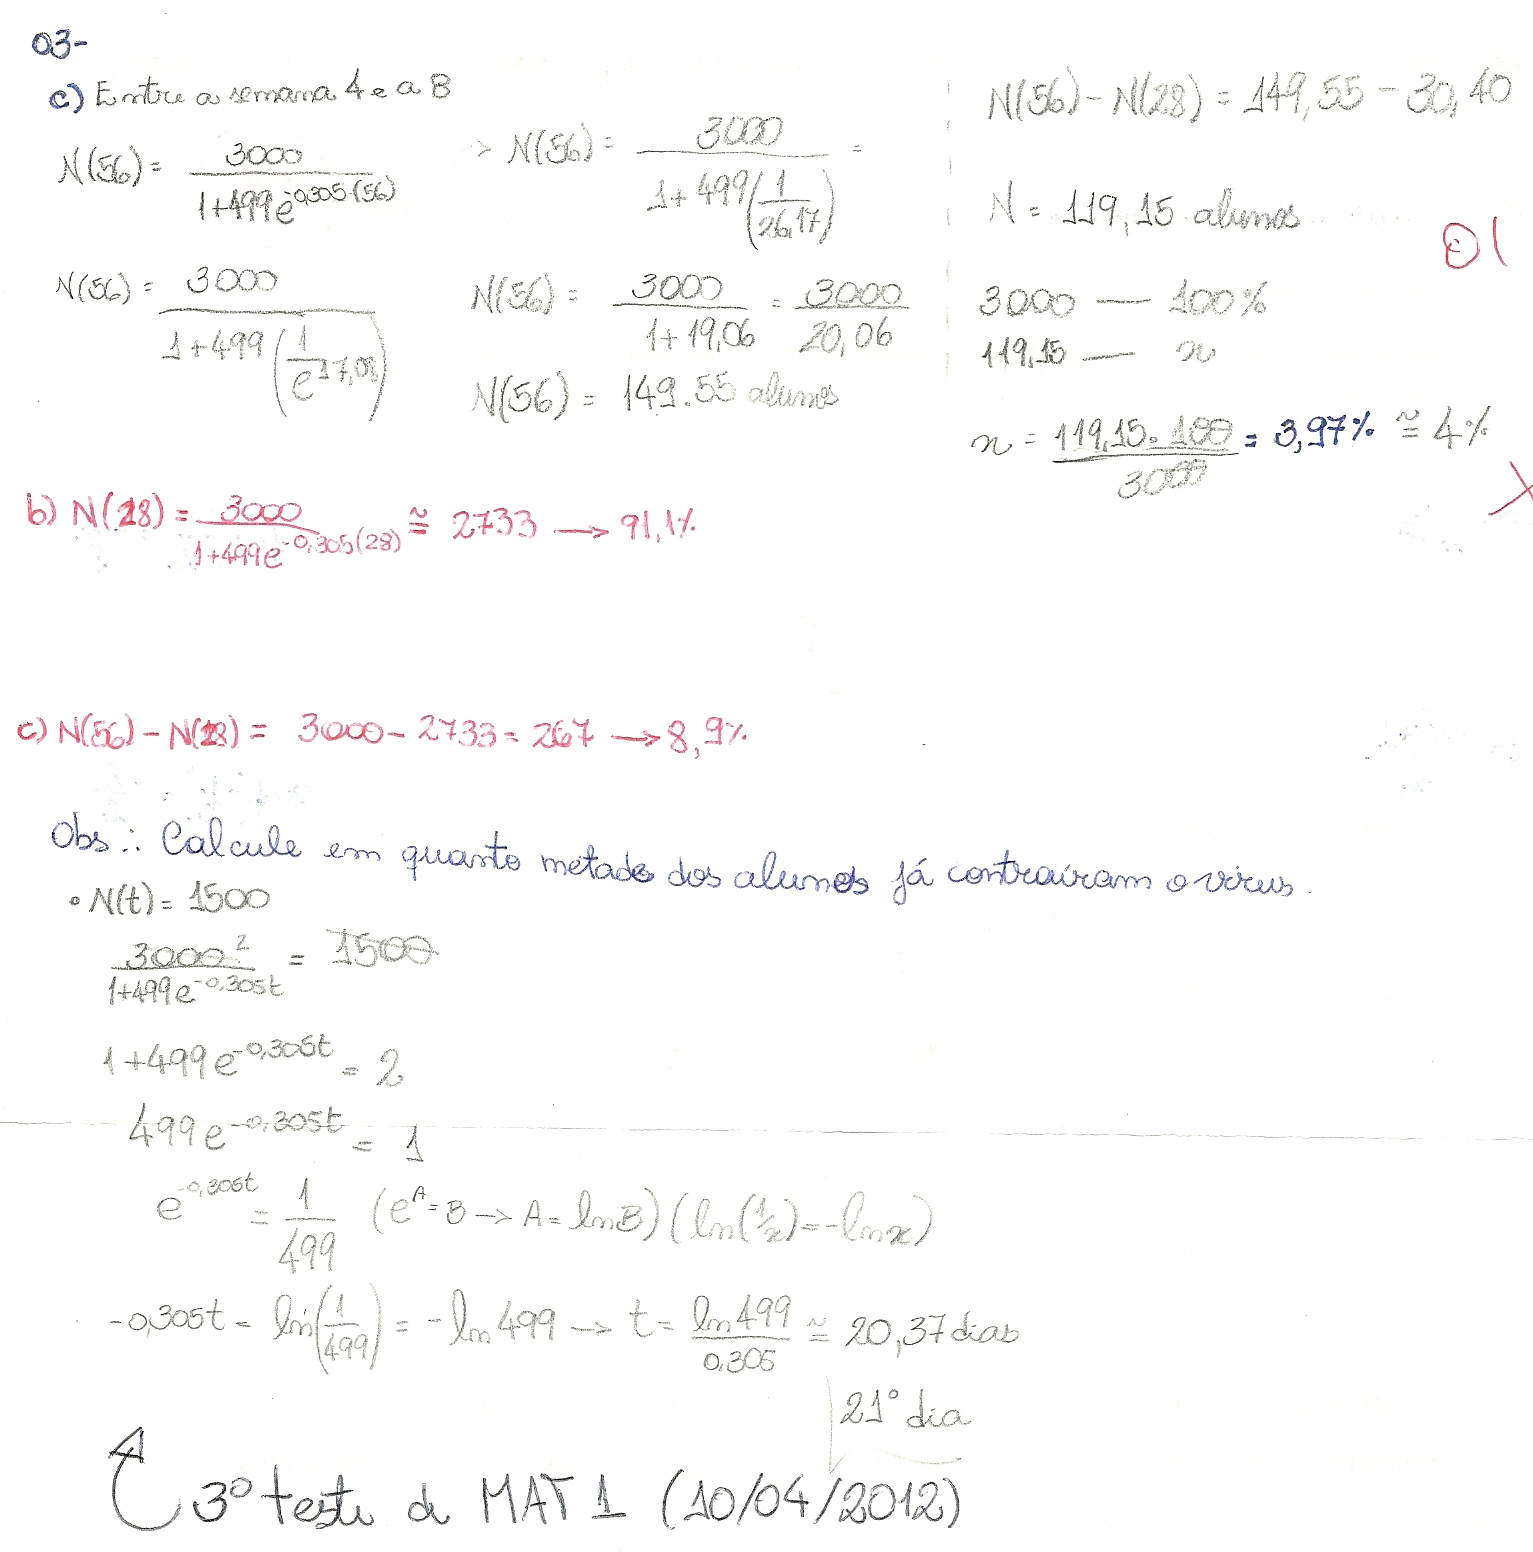 03-
c) Entre a semana 4 e a 8
N(56) = 3000 / 1+499e^-0,305.(56)
N(56) = 3000 / 1+499 (1 / e^17,08)
> N(56) = 3000 / 1+499 (1 / 26,17) =
N(56) = 3000 / 1+19,06 = 3000 / 20,06
N(56) = 149.55 alunos
N(56) - N(28) = 149,55 - 30,40
N = 119,15 alunos
3000 — 100%
119,15 — x
x = 119,15 . 100 / 3000 = 3,97% ≅ 4%
b) N(28) = 3000 / 1+499e^-0,305(28) ≅ 2733 → 91,1%
c) N(56) - N(28) = 3000 - 2733 = 267 → 8,9%
Obs ∴ Calcule em quanto metade dos alunos já contraíram o vírus.
• N(t) = 1500
3000 ² / 1+499e^-0,305t = 1500
1+499e^-0,305t = 2
499e^-0,305t = 1
e^-0,305t = 1 / 499 (e^A = B → A = lnB) (ln(1/x) = -lnx)
-0,305t = ln(1/499) = -ln 499 → t = ln 499 / 0,305 ≅ 20,37 dias
21° dia
3° teste de MAT 1 (10/04/2012)